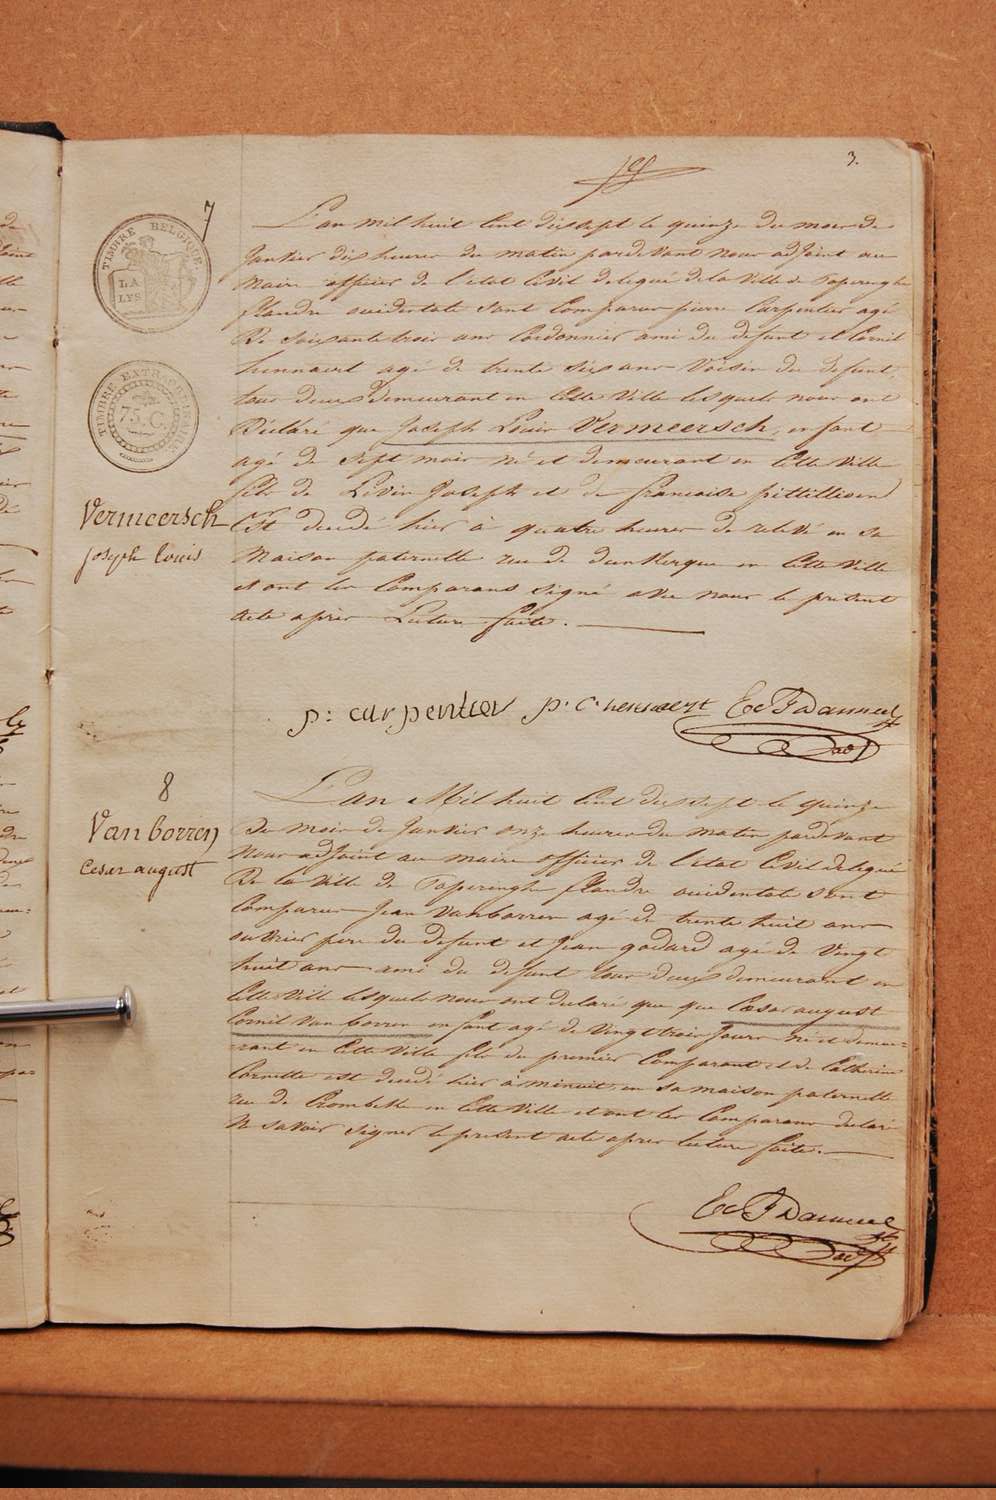 3.
7
TIMBRE BELGIQUE.
LA
LYS
TIMBRE EXTRAORDINAIRE
75. C.
Vermeersch
joseph louis
L'an mil huit Cent dixsept le quinze du mois de
Janvier dix heures du matin pardevant nous adjoint au
Maire officier de l'etat Civil delegué de la Ville de Poperenghe
flandre occidentale Sont Comparus pierre Carpentier agé
De Soixante trois ans Cordonnier ami du defunt et Cornil
hennaert agé de trente Six ans Voisin du defunt,
tous deux demeurant en Cette Ville lesquels nous ont
Déclaré que Joseph Louis Vermeersch, enfant
agé de Sept mois né et demeurant en Cette Ville
fils de Livin Joseph et de francoise pittillioen
Est decedé hier à quatre heures de relevé en sa
Maison paternelle rue de dunkerque en Cette Ville
et ont les Comparans signé avec nous le present
acte après Lecture faite.
p: carpentier p. C. hennaert
8
Van borren
Cesar august
L'an Mil huit Cent dixsept le quinze
du mois de Janvier onze heures du matin pardevant
Nous adjoint au maire officier de l'etat Civil delegué
De la Ville de Poperenghe flandre occidentale sont
Comparus Jean Vanborren agé de trente huit ans
ouvrier pere du defunt et Jean godard agé de Vingt
huit ans ami du defunt tous deux demeurant en
Cette Ville lesquels nous ont declaré que que Cesar august
Cornil Van borren enfant agé de Vingt trois Jours né et demeu=
rant en Cette Ville fils du premier Comparant et de Catherine
Cornette est decedé hier à minuit en sa maison paternelle
rue de en Cette Ville et ont les Comparans declaré
Ne savoir signer le present acte apres lecture faite.